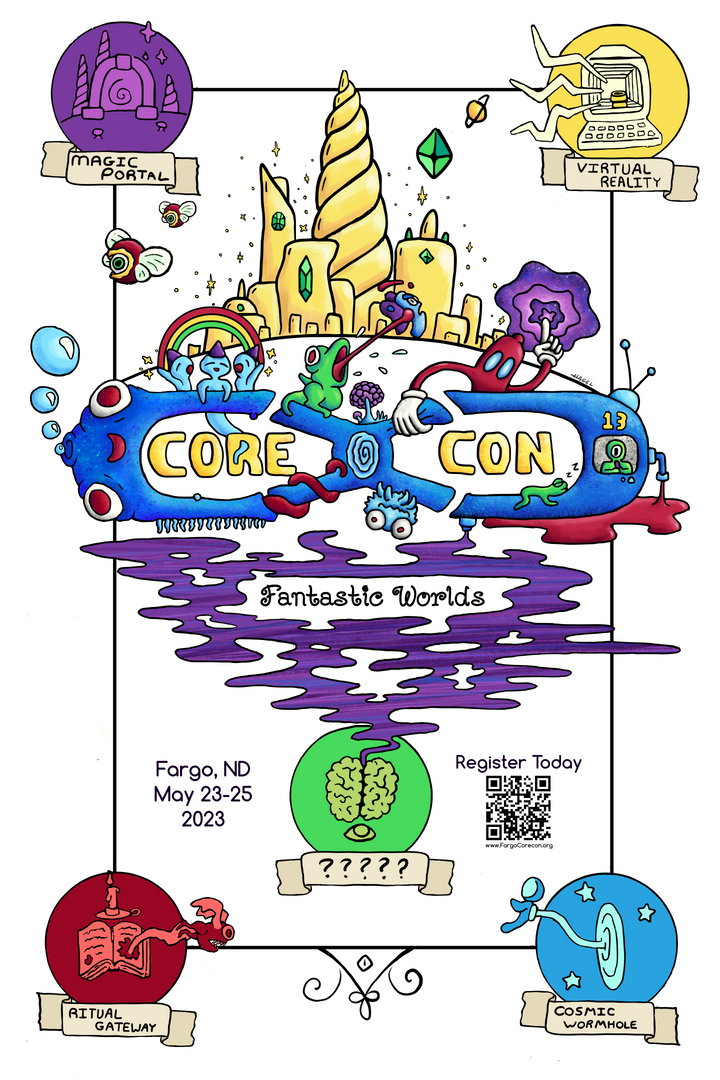 MAGIC
PORTAL
VIRTUAL
REALITY
HAGEL
CORE CON
13
z z
Fantastic Worlds
Fargo, ND
May 23-25
2023
Register Today
www.FargoCorecon.org
?????
RITUAL
GATEWAY
COSMIC
WORMHOLE